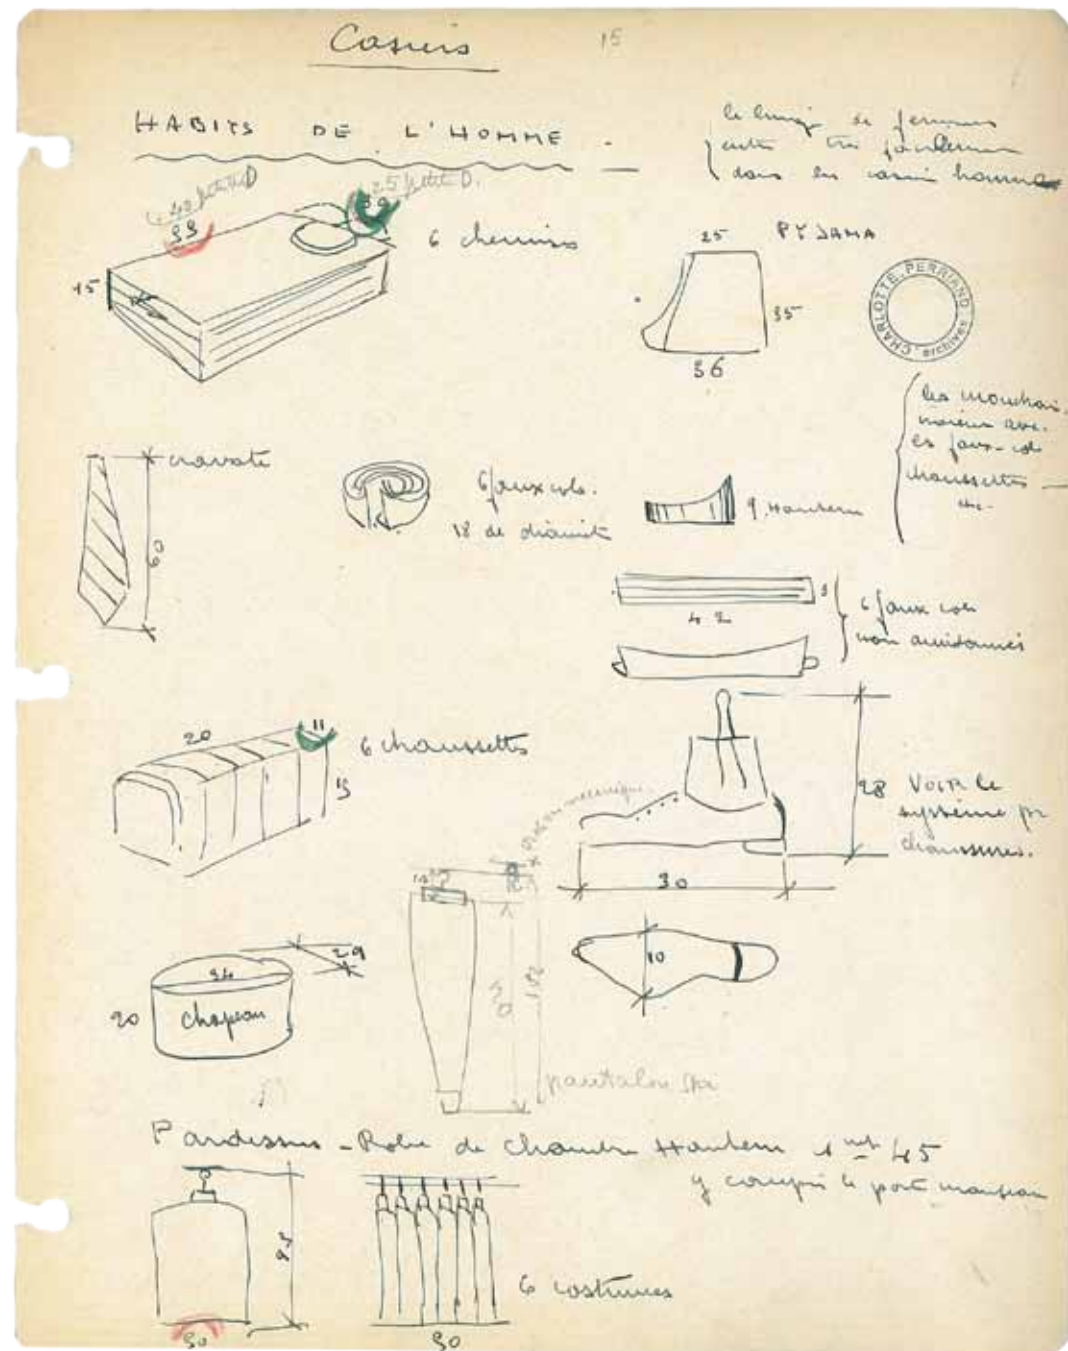 Casiers
15
HABITS DE L'HOMME -
le linge de femmes
entre très facilement
dans les casiers homme
40 petit D
39
25 petit D.
15
6 chemises
25
PYJAMA
35
36
CHARLOTTE PERRIAND archives
les mouchoirs
les faux-cols
chaussettes
etc-
cravate
60
6 faux cols.
18 de diamit
9. Hauteur
3
42
6 faux cols
non amidonnés
20
11
6 chaussettes
28
VOIR le
système pr
chaussures.
30
10
34
29
20
chapeau
pantalon ski
Pardessus - Robe de chambre Hauteur 1 mt 45
y compris le porte manteau
95
6 costumes